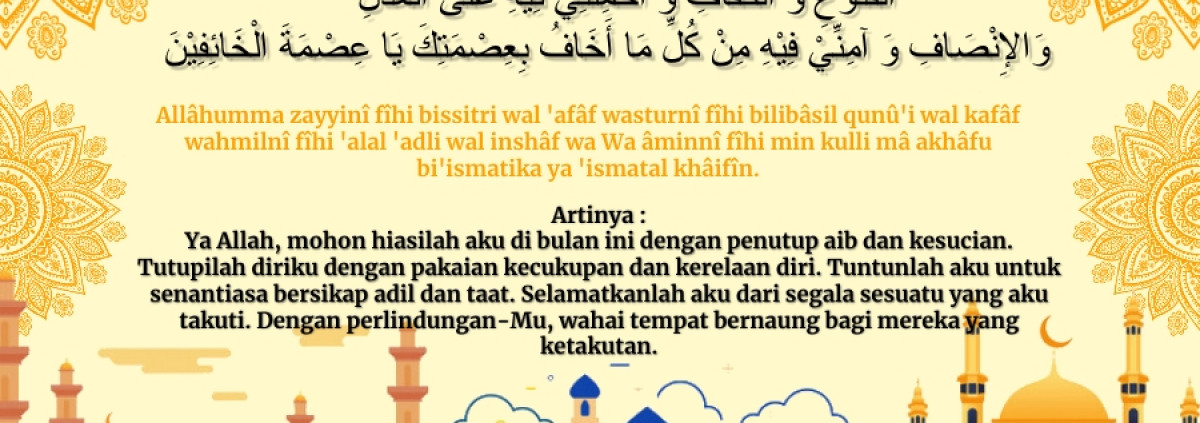 وَالإِنْصَافِ وَ آمِنِّيْ فِيْهِ مِنْ كُلِّ مَا أَخَافُ بِعِصْمَتِكَ يَا عِصْمَةَ الْخَائِفِيْنَ
Allâhumma zayyinî fîhi bissitri wal 'afâf wasturnî fîhi bilibâsil qunû'i wal kafâf
wahmilnî fîhi 'alal 'adli wal inshâf wa Wa âminnî fîhi min kulli mâ akhâfu
bi'ismatika ya 'ismatal khâifîn.
Artinya :
Ya Allah, mohon hiasilah aku di bulan ini dengan penutup aib dan kesucian.
Tutupilah diriku dengan pakaian kecukupan dan kerelaan diri. Tuntunlah aku untuk
senantiasa bersikap adil dan taat. Selamatkanlah aku dari segala sesuatu yang aku
takuti. Dengan perlindungan-Mu, wahai tempat bernaung bagi mereka yang
ketakutan.